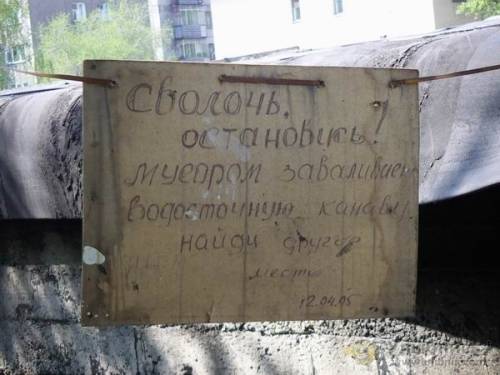 Сволочь,
остановись!
мусором заваливаешь
водосточную канаву
найди другое
место
12.04.05